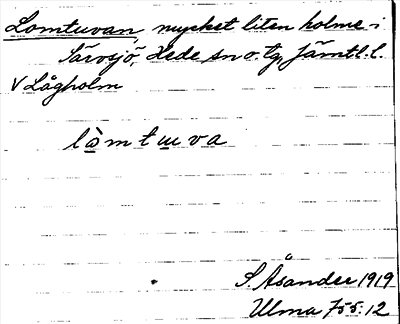 Lomtuvan, mycket liten holme i
Särvsjö, Hede sn o. tg, Jämtl. l.
V Lågholm
lòmtuva
S. Åsander 1919
Ulma 755:12